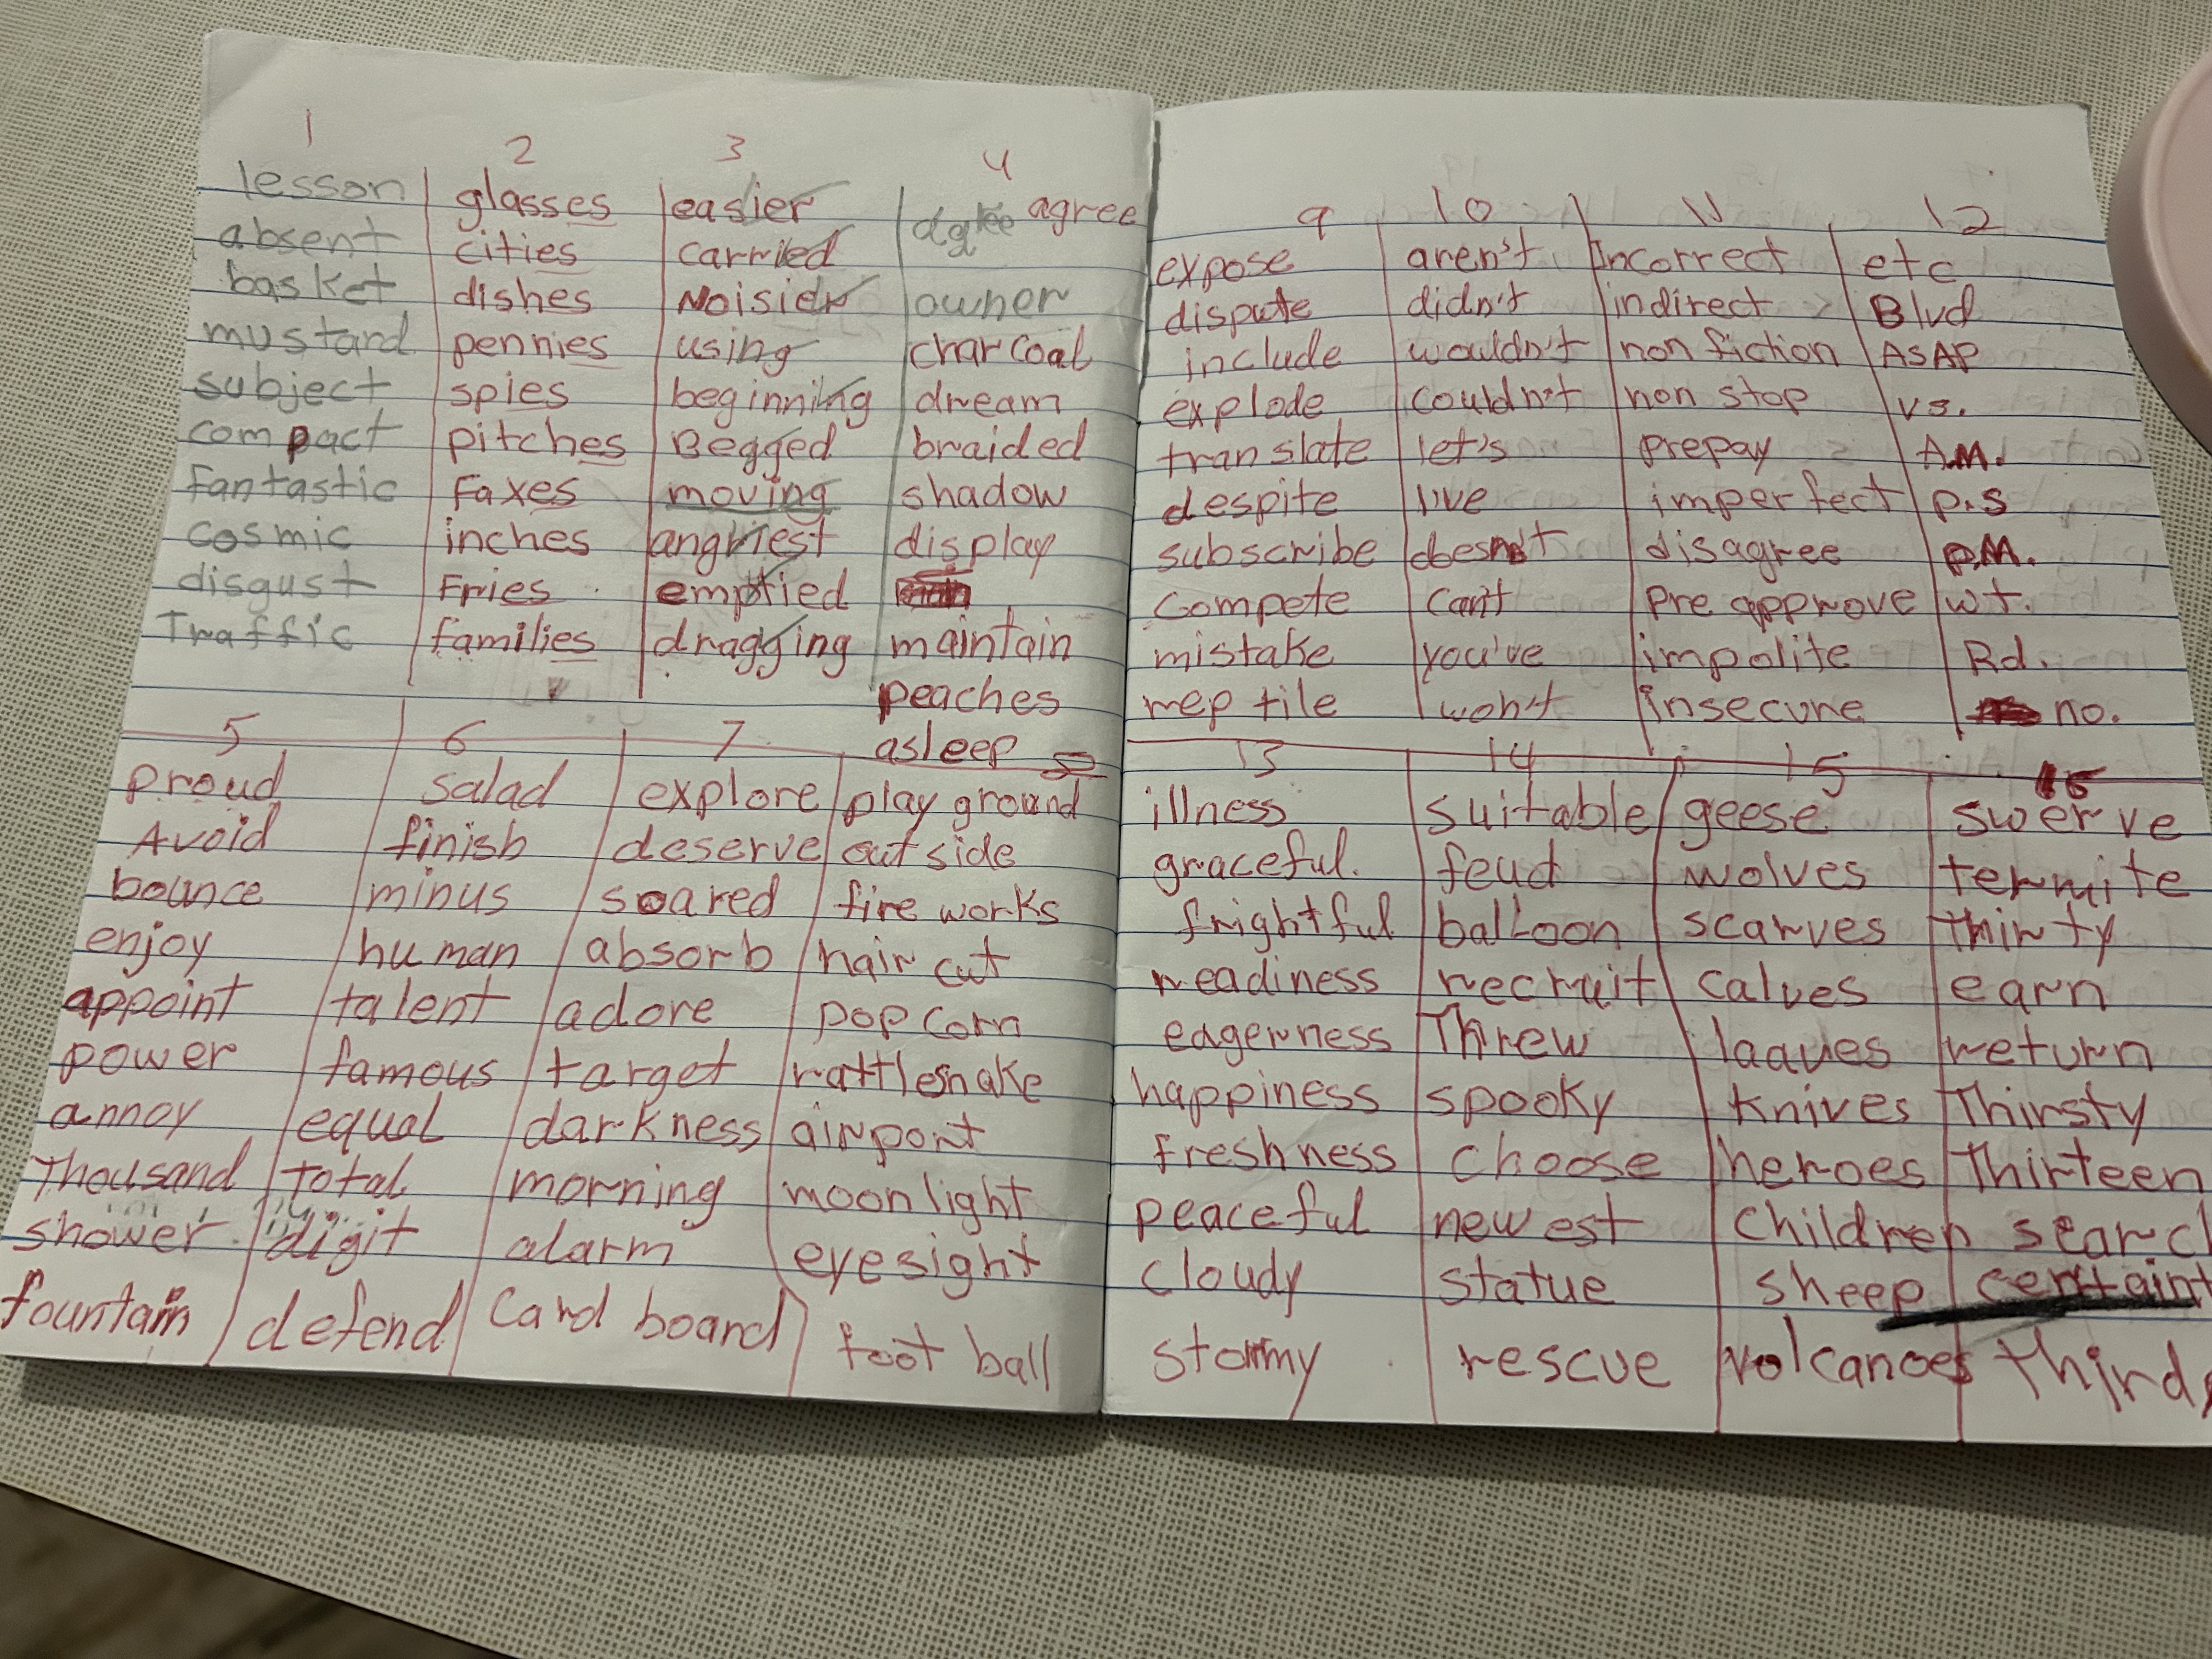 1 2 3 4
lesson glasses easier agree agree
absent cities carried
basket dishes Noisier owner
mustard pennies using charcoal
subject spies beginning dream
compact pitches Begged braided
Fantastic Faxes moving shadow
Cosmic inches angriest display
disgust Fries emptied
Traffic families dragging maintain
peaches
asleep
5 6 7
proud salad explore play ground
Avoid finish deserve out side
bounce minus soared fire works
enjoy human absorb hair cut
appoint talent adore pop corn
power famous target rattlesnake
annoy equal darkness airport
Thousand total morning moon light
shower digit alarm eyesight
fountain defend Card board foot ball
9 10 11 12
expose aren't Incorrect etc
dispute didn't indirect Blvd
include wouldn't non fiction ASAP
explode couldn't non stop vs.
translate let's prepay A.M.
despite I've imperfect p.s
subscribe doesn't disagree p.M.
Compete can't pre approve wt.
mistake you've impolite Rd.
reptile won't insecure no.
13 14 15 16
illness suitable geese swerve
graceful. feud wolves termite
frightful balloon scarves thirty
readiness recruit calves earn
eagerness Threw leaves return
happiness spooky knives Thirsty
freshness choose heroes Thirteen
peaceful newest children
cloudy statue sheep
stormy rescue volcanoes third